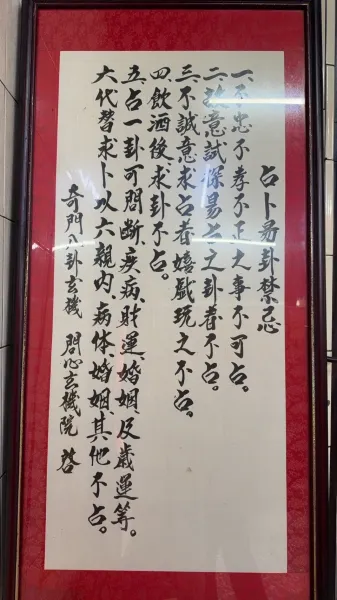 占卜易卦禁忌
一、不忠不孝不正之事不可占。
二、故意試探易占之卦者不占。
三、不誠意求占者嬉戲玩之不占。
四、飲酒後求卦不占。
五、占一卦可問斷、疾病、財運、婚姻、及歲運等。
六、代替求卜以六親內、病体、婚姻、其他不占。
奇門八卦玄機 問心玄機院 啓